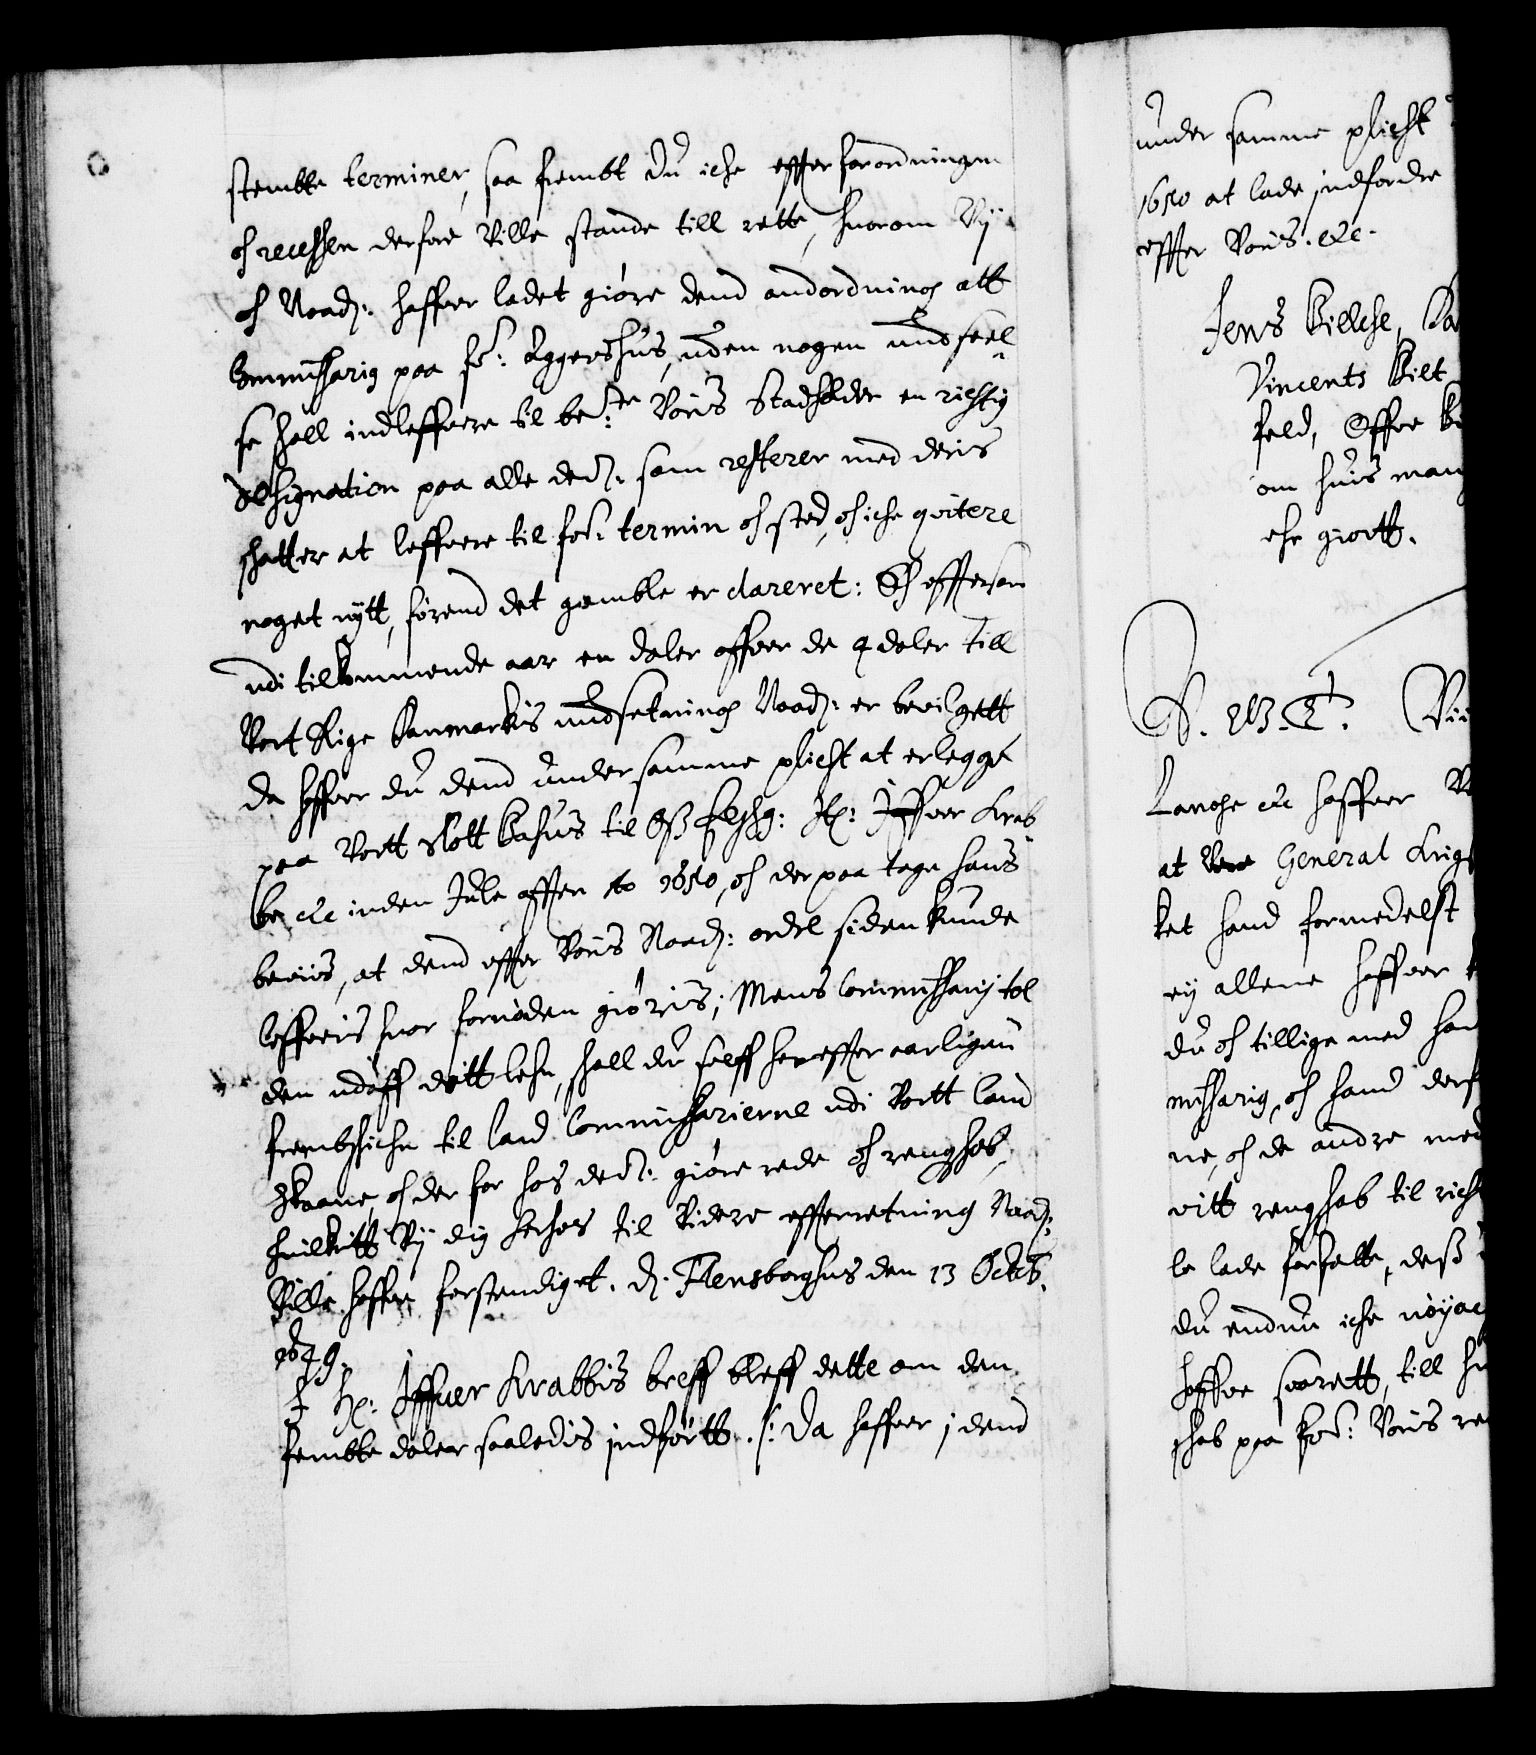 stembte terminer, saa frembt du iche effter forordningen
oc recessen derfore ville stande till rette, huorom Vij
oc Naad: haffuer ladet giøre dend andordning att
Commissarig paa fs: Aggershus, uden nogen undseel-
se skall indleffuere til be:te Voris Stadholder en richtig
designation paa alle ded: som resterer med deris
skatter at leffuere til fors: termin oc sted, oc iche qvitere
noget nytt, førend det gamble er clareret: Och efftersom
udi tilkommende aar en daler offuer de 4 daler till
Vort Rige Danmarkis undsetning Naad: er bevilgett
da haffuer du dend under samme plicht at erlegge
paa Vortt Slott Bahus til Oss Elskg: Hr: Iffuer Krab-
be etc inden Jule afften Ao 1650, oc der paa tage hans
beviis, at dend effter Voris Naad: ordre siden kunde
leffueris huor fornøden giøris; Mens Commissarij tol
den udaff ditt lehn, skall du selff her effter aarligen
frembskicke til land Commissarierne udi Vortt land
Skaane, oc der for hos dend: giøre rede oc rengskab,
huilkett Vij dig herhos til videre effterretning Naad:
Ville haffue forstendiget. d. Flensborghus den 13 Octob.
1649.
I Hr: Iffuer Krabbis breff bleff dette om den
fembte daler saaledis indførtt. /: Da haffuer i dend
under samme plicht
1650 at lade indfordre
effter Voris. etc.
Jens Bilche,
Vincents Bilt
feld, Offue
om huis man
che giortt.
Lange etc haffuer
at General Krigs
ket hand formedelst
ej allene haffuer
du oc tillige med han
missarig, oc hand derf
ne, oc de andre med
vitt rengskab til richt
le lade forfatte, dess
du endnu iche nøyac
haffue svarett, till hu
skab paa for: Voris re